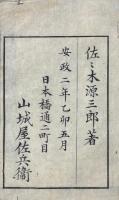 佐々木源三郎著
安政二年乙卯五月
日本橋通二町目
山城屋佐兵衛